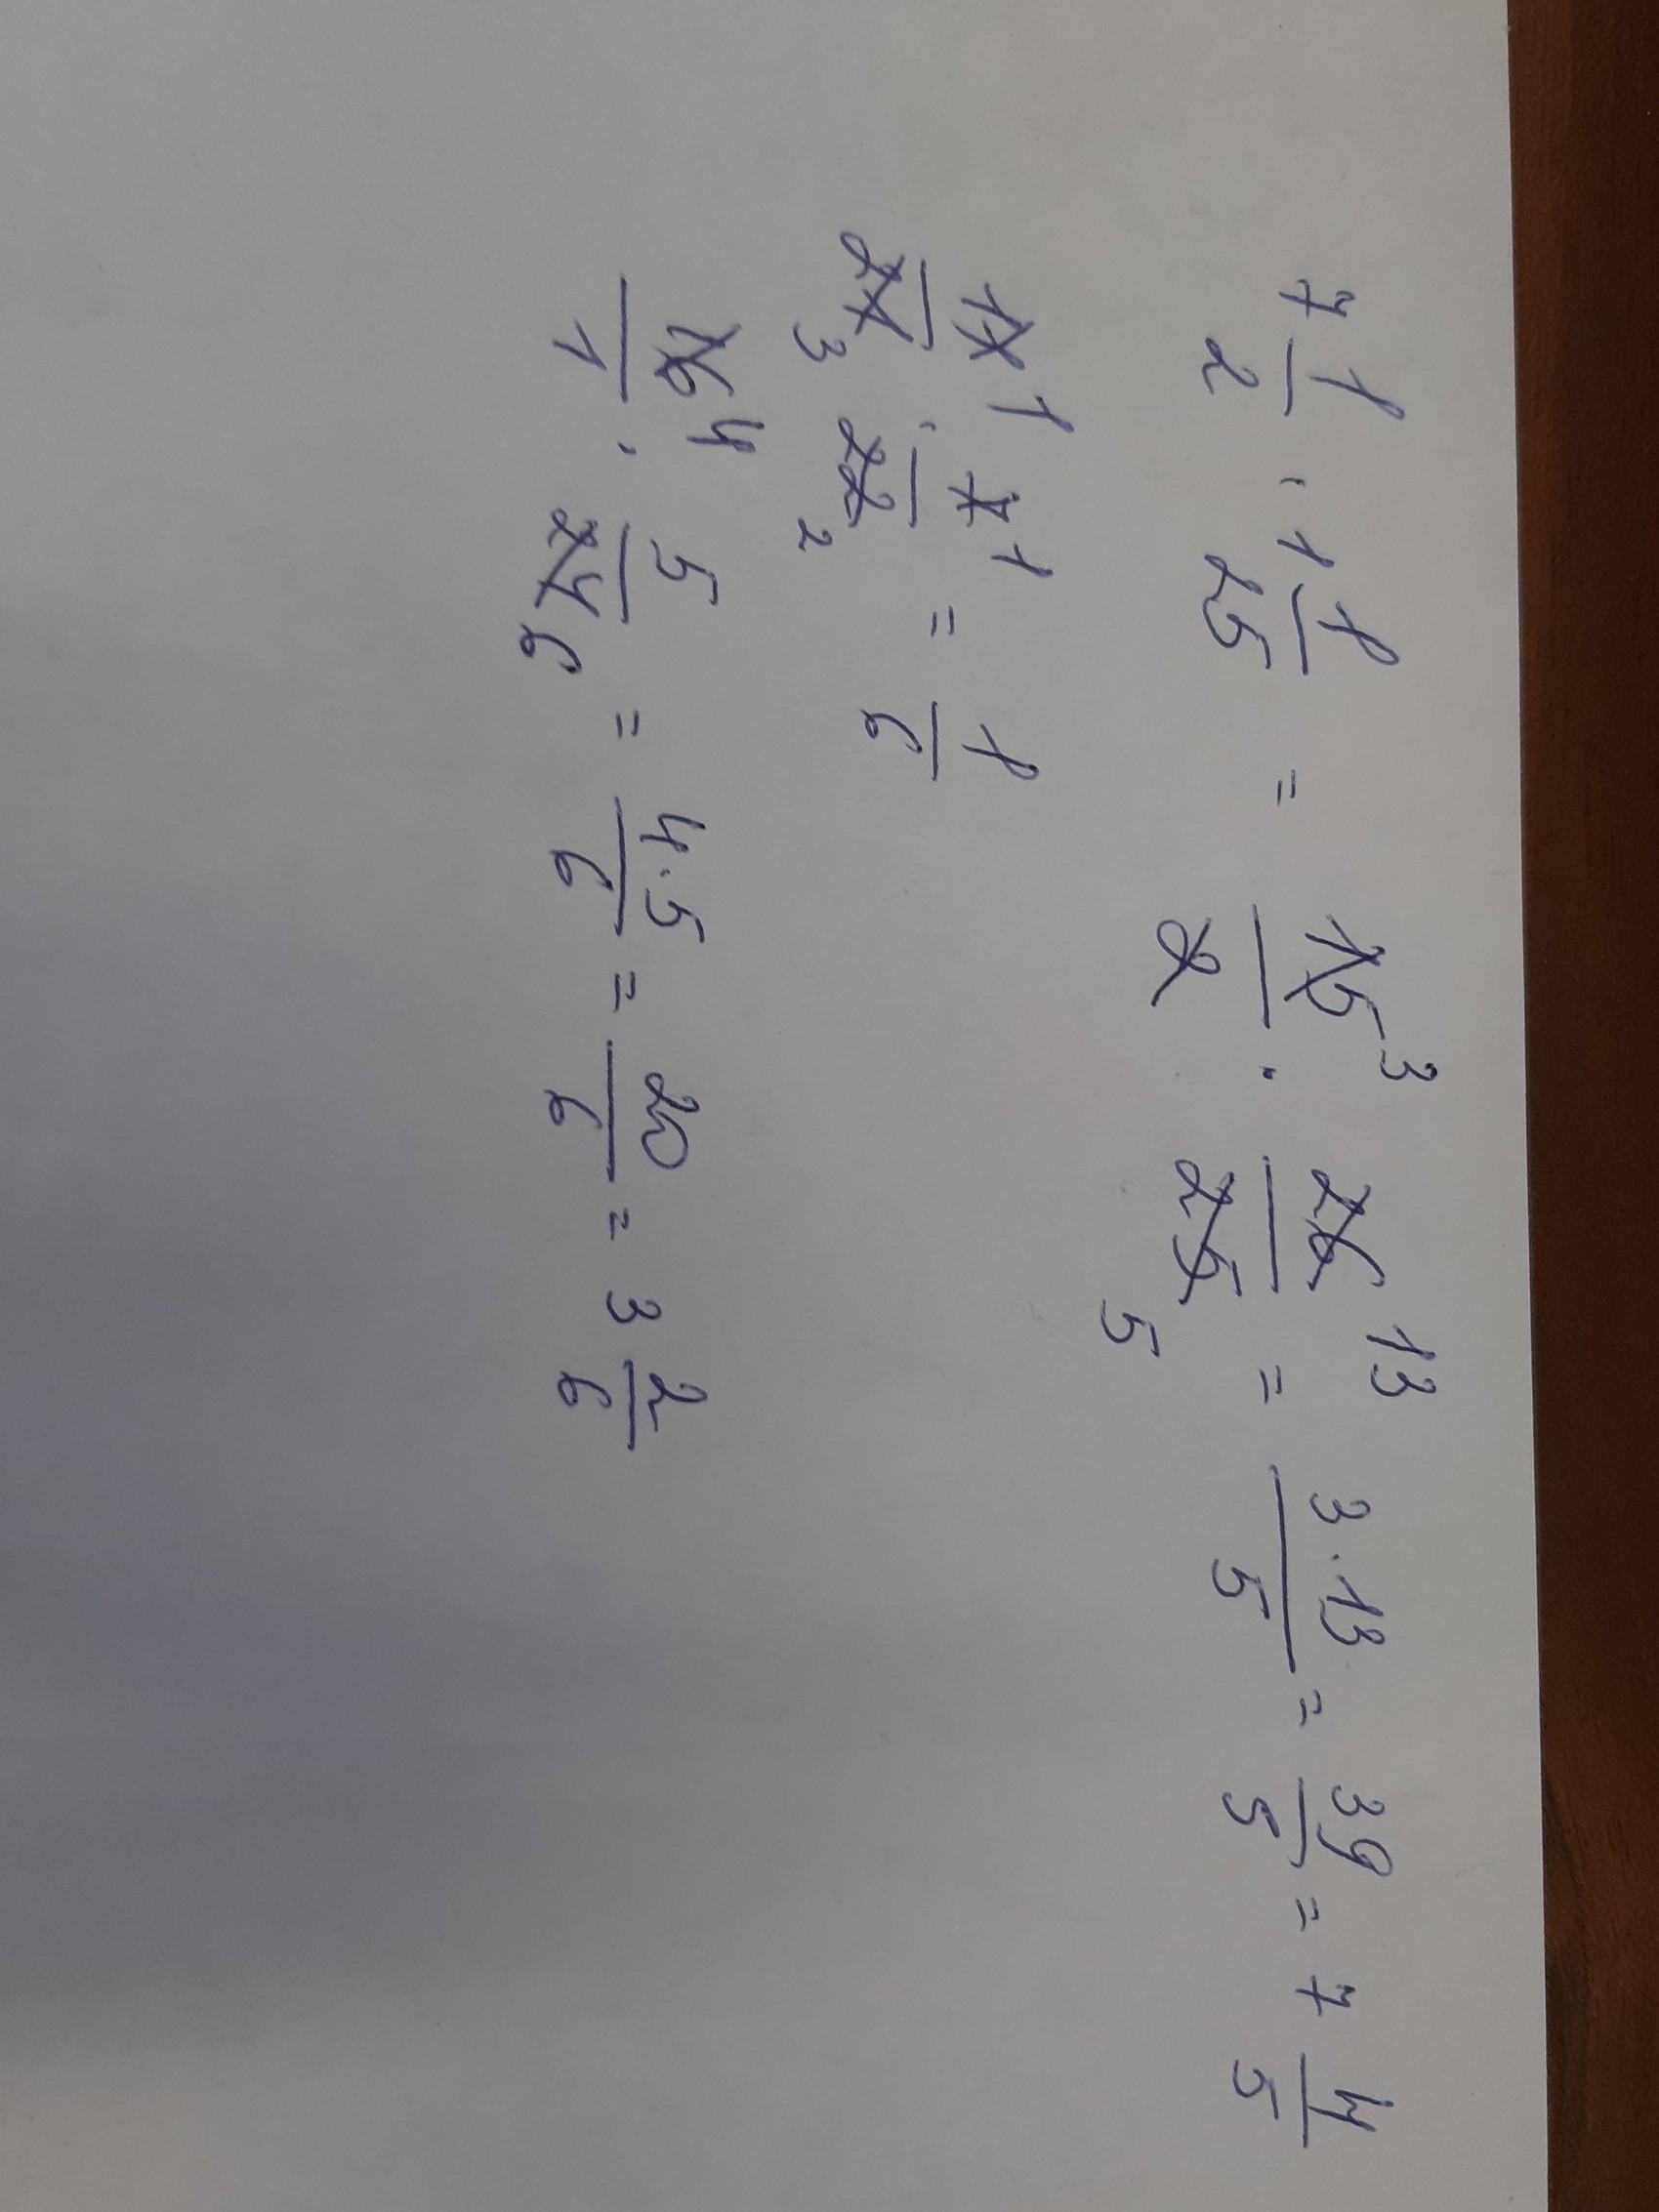 7 1/2 · 1 1/25 = 15³/2 · 26¹³/25₅ = 3·13/5 = 39/5 = 7 4/5
11¹/21₃ · 7¹/22₂ = 1/6
16⁴/1 · 5/24₆ = 4·5/6 = 20/6 = 3 2/6